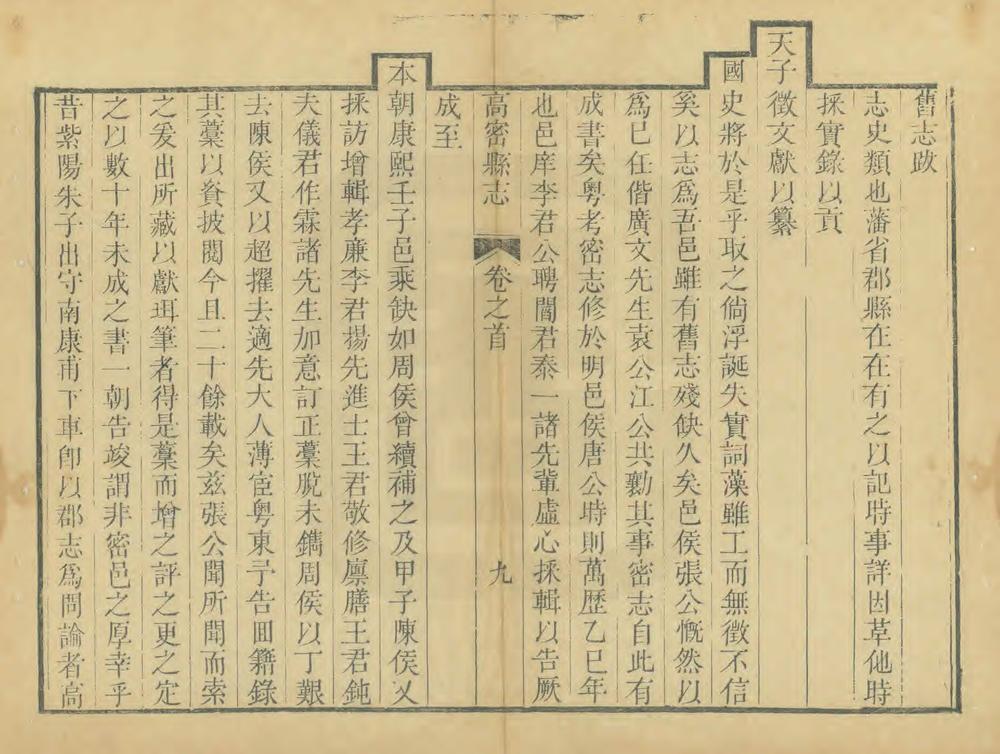 舊志䟦
志史類也藩省郡縣在在有之以記時事詳因革他時
採實錄以貢
天子徵文獻以纂
國史將於是乎取之倘浮誕失實詞藻雖工而無徵不信
奚以志爲吾邑雖有舊志殘缺久矣邑侯張公慨然以
爲已任偕廣文先生袁公江公共勷其事密志自此有
成書矣粤考密志修於明邑侯唐公時則萬歷乙巳年
也邑庠李君公聘閻君泰一諸先輩虛心採輯以告厥
高密縣志 卷之首 九
成至
本朝康熙壬子邑乘缺如周侯曾續補之及甲子陳侯又
採訪增輯孝亷李君揚先進士王君敬修廪膳王君鈍
夫儀君作霖諸先生加意訂正藳脫未鐫周侯以丁艱
去陳侯又以超擢去適先大人薄宦粤東予告囬籍錄
其藳以資披閱今且二十餘載矣兹張公聞所聞而索
之爰出所藏以獻珥筆者得是藳而增之評之更之定
之以數十年未成之書一朝告竣謂非密邑之厚幸乎
昔紫陽朱子出守南康甫下車卽以郡志爲問論者高